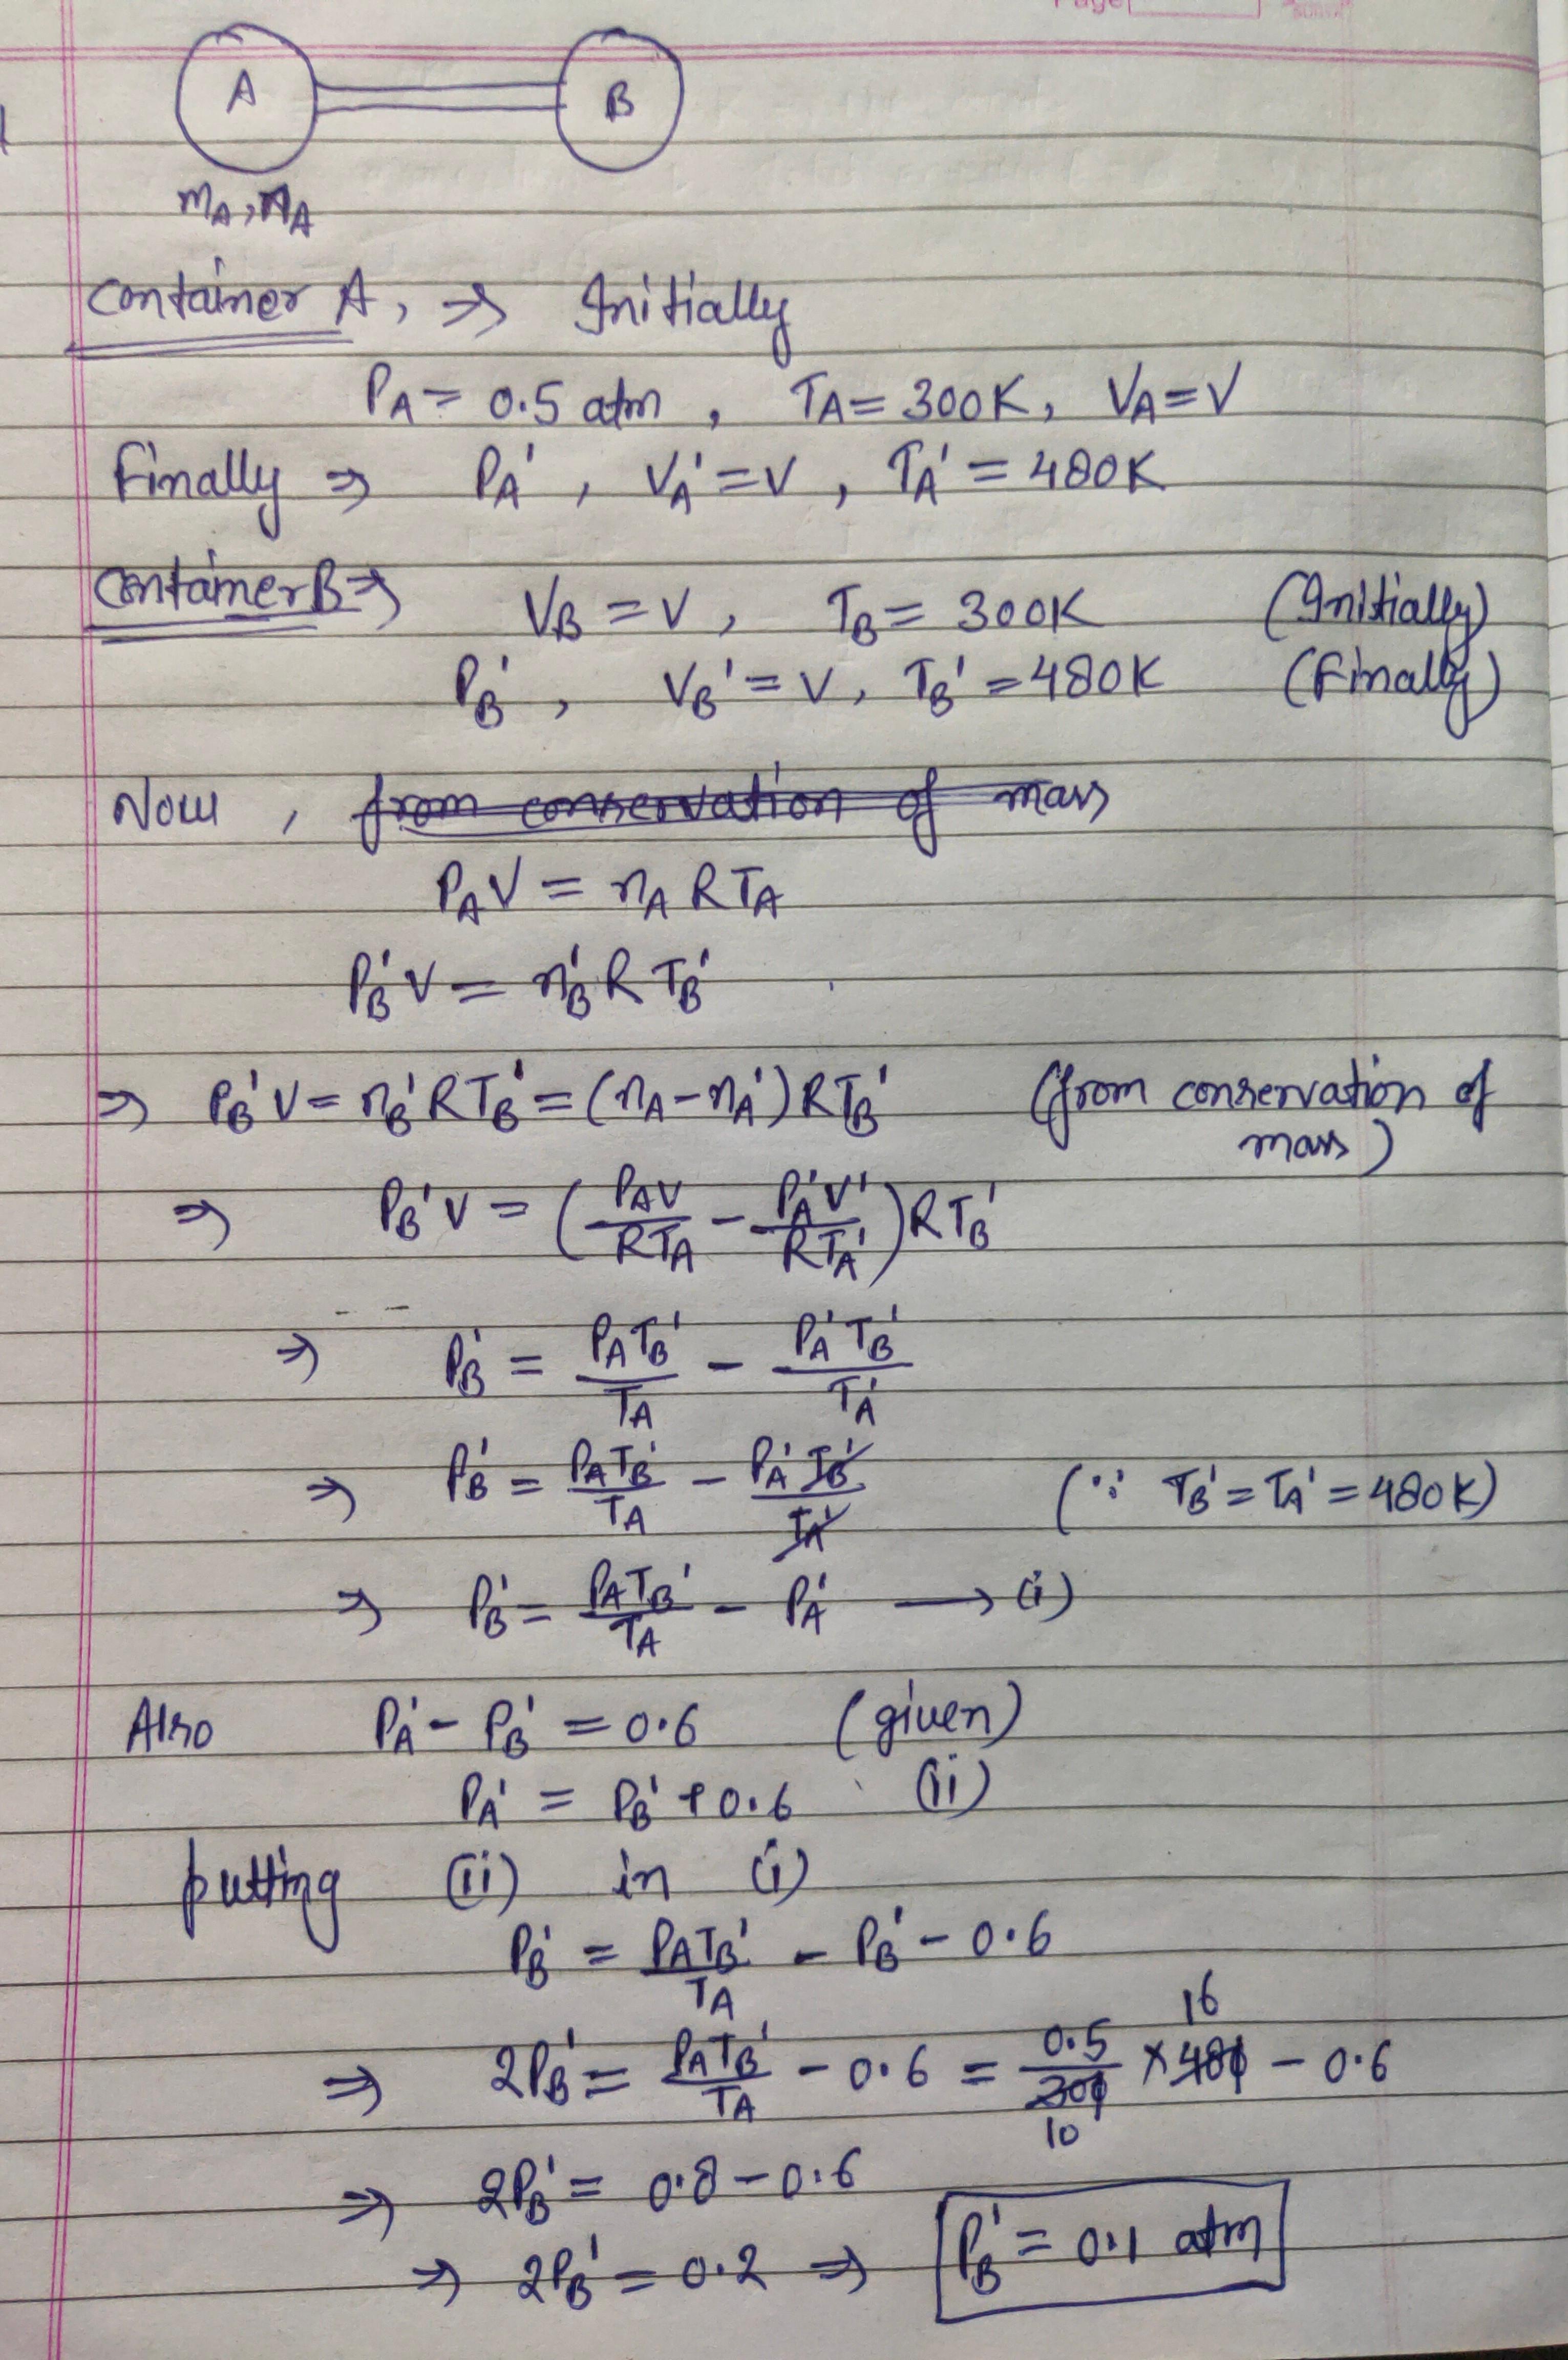 Page
A B
mA, nA
Container A, ⇒ Initially
PA = 0.5 atm, TA = 300K, VA = V
Finally ⇒ PA', VA' = V, TA' = 480K
Container B ⇒ VB = V, TB = 300K (Initially)
PB', VB' = V, TB' = 480K (Finally)
Now, from conservation of mass
PAV = nA RTA
PB'V = nB' R TB'
⇒ PB'V = nB' RTB' = (nA - nA') RTB' (from conservation of
mass)
⇒ PB'V = (PAV/RTA - PA'V'/RTA') RTB'
⇒ PB' = PATB'/TA - PA'TB'/TA'
⇒ PB' = PATB'/TA - PA'TB'/TA' (∵ TB' = TA' = 480K)
⇒ PB' = PATB'/TA - PA' → (i)
Also PA' - PB' = 0.6 (given)
PA' = PB' + 0.6 (ii)
putting (ii) in (i)
PB' = PATB'/TA - PB' - 0.6
⇒ 2PB' = PATB'/TA - 0.6 = 0.5/300 × 480 - 0.6
16
10
⇒ 2PB' = 0.8 - 0.6
⇒ 2PB' = 0.2 ⇒ PB' = 0.1 atm